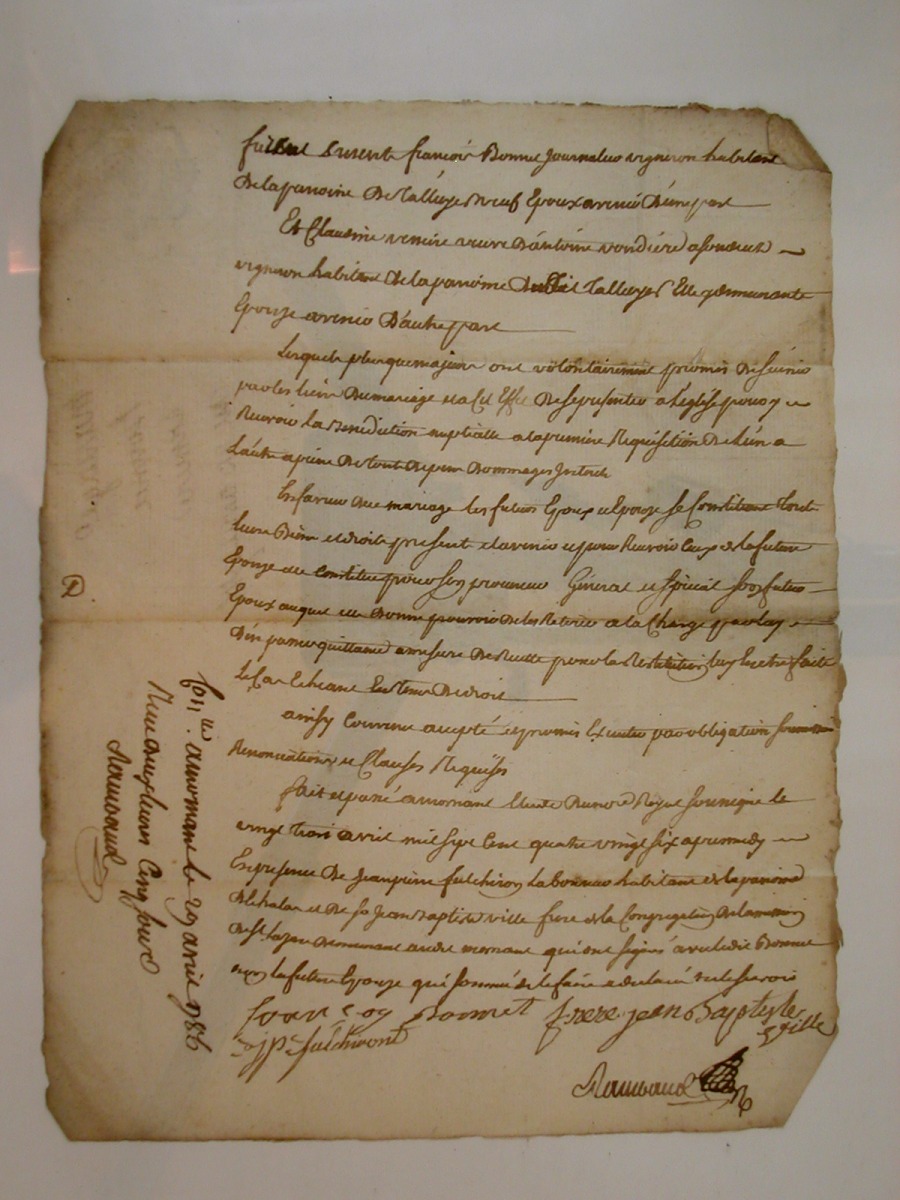 furent presents françois Bonnet Journalier vigneron habitant
de la paroisse de Talluyes veuf Epoux avenir d'une part
Et Claudine veuve d'antoine vondiere a son decet
vigneron habitant de la paroisse dudit Talluyes Elle y demeurante
Epouze avenir d'autre part
Lesquels plus que majeurs ont volontairement promis de s'unir
par les liens du mariage et a cet Effet de se presenter a l'eglise pour y
Recevoir la Benediction nuptialle a la premiere Requisition de l'un a
l'autre a peine de tout depens dommages Interets
En faveur du mariage les futurs Epoux et Epouze se Constituent tout
leurs Biens et droits present et avenir et pour Recevoir ceux de la future
Epouze elle Constitue pour son procureur General et special son futur
Epoux auquel elle donne pouvoir de les Retirer a la Charge par luy
d'en passer quittance a mesure de Recette pour la Restitution luy En etre faite
le Cas Echeant En termes de droit
ainsy Convenu accepté et promis Executer par obligation soumissions
Renonciations et Clauses Requises
fait et passé a mornant Etude du no.re Royal soussigné le
vingt trois avril mil sept Cent quatre vingt six apres midy
En presence de Jean pierre fulchiron laboureur habitant de la paroisse
de Chalan et de Sr Jean Baptiste ville frere de la Congregation de la mission
de St lazare demeurant audit mornant qui ont signés avec ledit Bonnet
non la future Epouze qui sommé de le faire a declaré ne le scavoir
francoy Bonnet frere jean Baptiste
ville
jp fulchiront
Con.lé a mornant le 29 avril 1786
Reçu deux livres Cinq sous